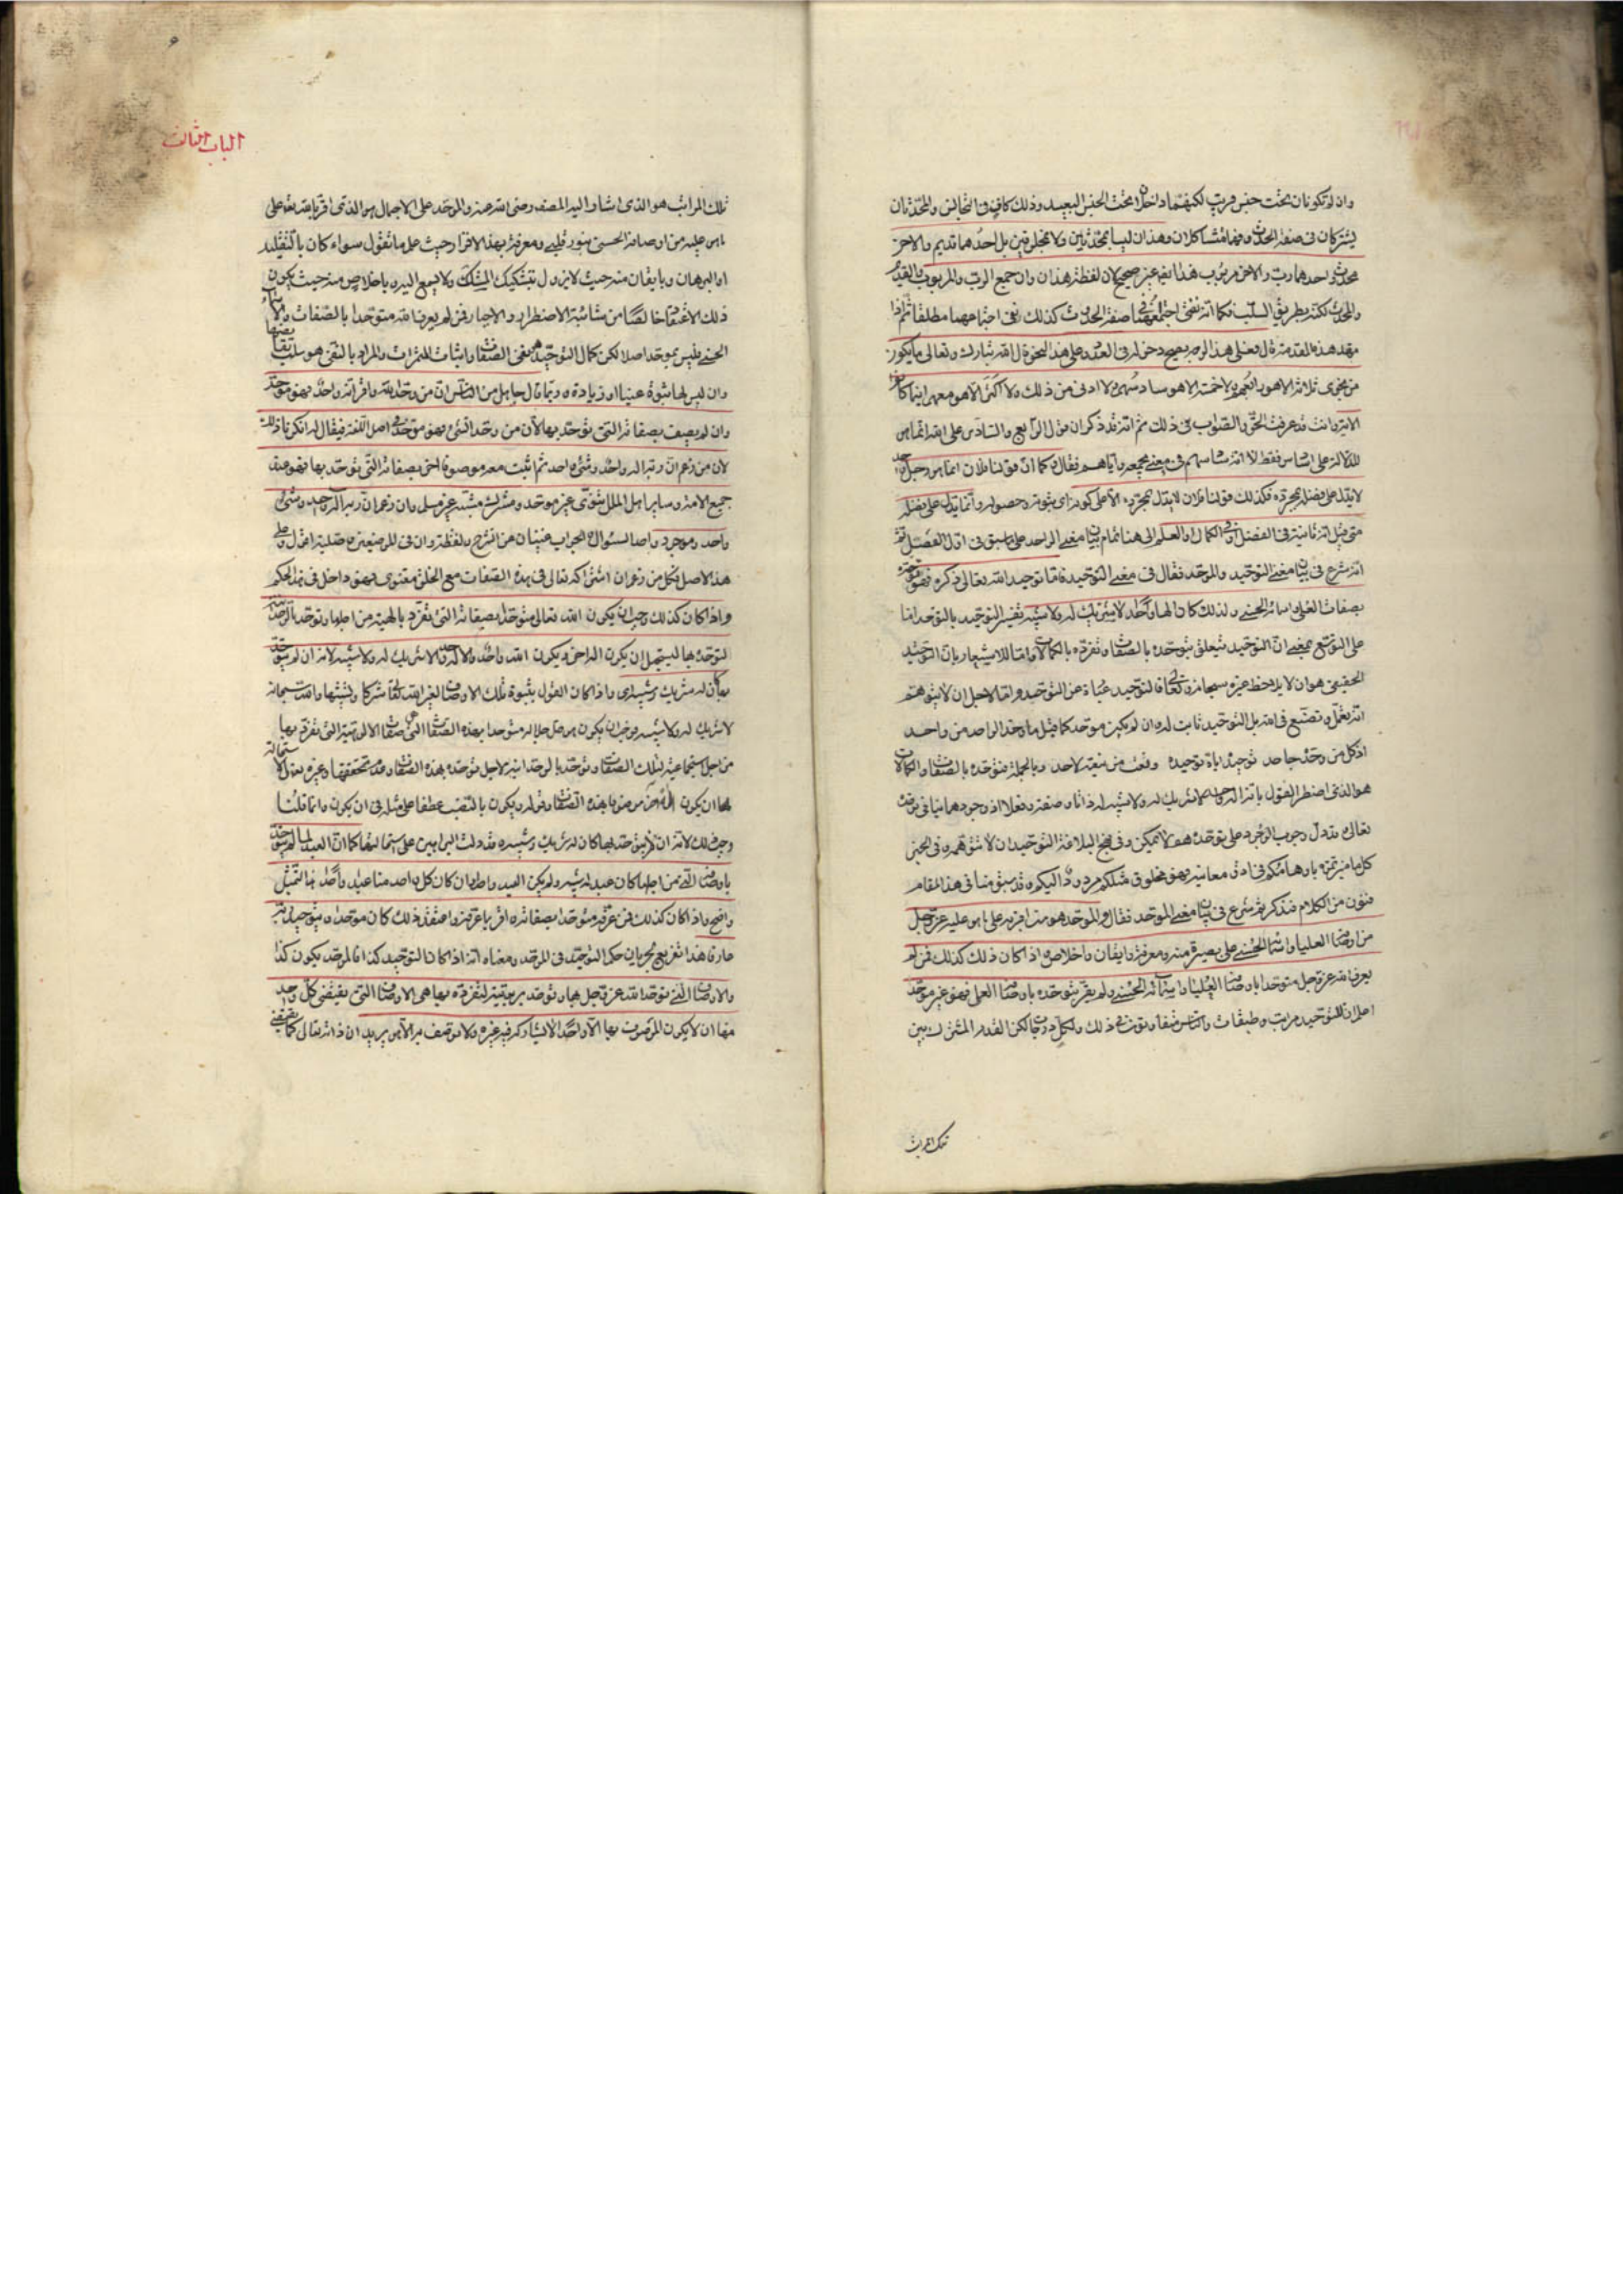 وان لم تكونا تحت جنس قريب لكنهما داخلان تحت الجنس البعيد وذلك كاف في التجانس والمحدثان
يشتركان في صفة الحدث وهما متشاكلان وهذان ليسا بمحدثين ولا مخلوقين بل احدهما قديم والاخر
محدث واحدهما رب والاخر مربوب هذا
والمحدث لكنه بطريق السلب فكما انه نفى اجتماعهما في صفة الحدوث كذلك نفى اجتماعهما مطلقا ثم اذا
مهد هذه المقدمة قال فعلى هذا الوجه يصح دخوله في العدد وعلى هذا النحو قال الله تبارك وتعالى ما يكون
من نجوى ثلاثة الا هو رابعهم ولا خمسة الا هو سادسهم ولا ادنى من ذلك ولا اكثر الا هو معهم اينما كانوا
الاية وانت قد عرفت الحق والصواب في ذلك ثم انه قد ذكر ان قول الرابع والسادس على الله انما هو
للدلالة على
لا يدل على فضله بمجرده فكذلك قولنا فلان لا يدل بمجرده الا على كونه اي ثبوته وحصوله وانما يدل على فضله
متى قيل انه ثانيه في الفضل او في الكمال او العلم الى هنا تمام بيان معنى الواحد على ما سبق في اول الفصل ثم
انه شرع في بيان معنى التوحيد والموحد فقال في معنى التوحيد فاما توحيد الله تعالى ذكره فهو توحده
بصفاته العلى واسمائه الحسنى ولذلك كان الها واحدا لا شريك له ولا شبيه تفسير التوحيد بالتوحد اما
على التوسع بمعنى ان التوحيد يتعلق بتوحده بالصفات وتفرده بالكمالات واما للاشعار بان التوحيد
الحقيقي هو ان لا يلاحظ غيره سبحانه وتعالى فالتوحيد عبارة عن التوحد واما لاجل ان لا يتوهم
انه بتعمل وتصنع في امره بل التوحيد ثابت له وان لم يكن موحد كما قيل ما وحد الواحد من واحد
اذ كل من وحده جاحد توحيده اياه توحيده ونعت من ينعته لاحد وبالجملة فتوحده بالصفات والكمالات
هو الذي اضطر القول بانه اله واحد لا شريك له ولا شبيه له ذاتا وصفة وفعلا اذ وجودهما ينافي توحده
تعالى
كل ما ميزتموه باوهامكم في ادق معانيه فهو مخلوق مثلكم مردود اليكم وقد سبق منا في هذا المقام
فنون من الكلام فتذكر ثم شرع في بيان معنى الموحد فقال والموحد هو من اقر به على ما هو عليه عز وجل
من اوصافه العليا واسمائه الحسنى على بصيرة منه ومعرفة وايقان واخلاص واذا كان ذلك كذلك فمن لم
يعرف الله عز وجل متوحدا باوصافه العليا واسمائه الحسنى ولم يقر بتوحده باوصافه العلى فهو غير موحد
اعلم ان للتوحيد مراتب وطبقات والناس متفاوتون في ذلك ولكل درجات لكن القدر المشترك بين
تلك المراتب
الباب الثالث
تلك المراتب هو الذي اشار اليه المصنف رضي الله عنه والموحد على الاجمال هو الذي اقر بالله تعالى على
ما هو عليه من اوصافه الحسنى بنور قلبي ومعرفة بهذا الاقرار حيث علم ما تقول سواء كان بالتقليد
او البرهان وبايقان منه حيث لا يزول بتشكيك المشكك ولا يسمع اليه وباخلاص منه حيث يكون
ذلك الاعتقاد خالصا من شائبة الاضطرار والاجبار فمن لم يعرف الله متوحدا بالصفات والاسماء
الحسنى فليس بموحد اصلا لكن كمال التوحيد هو نفي الصفات واثبات الثمرات والمراد بالنفي هو سلب نقايضها
وان ليس لها ثبوت عينا او زيادة وربما قال جاهل من الناس ان من وحد الله واقر انه واحد فهو موحد
وان لم يصفه بصفاته التي توحد بها لان من وحد الشيء فهو موحد في اصل اللغة فيقال له انكرنا ذلك
لان من زعم ان ربه اله واحد وشيء واحد ثم اثبت معه موصوفا اخر بصفاته التي توحد بها فهو عند
جميع الامة وساير اهل الملل ثنوي غير موحد ومشرك مشبه غير مسلم وان زعم ان ربه اله واحد وشيء
واحد وموجود واحد السؤال والجواب غنيان عن الشرح ولفظة وان في الموضعين وصلية اقول وعلى
هذا الاصل فكل من زعم ان اشتراكه تعالى في هذه الصفات مع الخلق معنوي فهو داخل في هذا الحكم
واذا كان كذلك وجب ان يكون الله تعالى متوحدا بصفاته التي تفرد بالهية من اجلها وتوحد بالوحدانية
لتوحده بها ليستحيل ان يكون اله اخر ويكون الله واحدا والاله واحدا لا شريك له ولا شبيه لانه ان لم يتوحد
بها كان له شريك وشبيه اي واذا كان القول بثبوت تلك الاوصاف لغير الله تعالى شركا وتشبيها والله سبحانه
لا شريك له ولا شبيه فوجب ان يكون هو جل جلاله متوحدا بهذه الصفات التي هي صفات الالوهية التي تفرد بها
من اجل استجماعية لتلك الصفات وتوحد بالوحدانية لاجل توحده بهذه الصفات
لها ان يكون اله اخر موصوفا بهذه الصفات وقوله ويكون بالنصب عطفا على مثله في ان يكون وانما قلنا
وجب ذلك لانه ان لم يتوحد بها كان له شريك وشبيه وقد دلت البراهين على استحالتها كما ان العبد لما لم يتوحد
باوصافه التي من اجلها كان عبدا له شبيه ولم يكن العبد واحدا وان كان كل واحد منا عبدا واحدا هذا التمثيل
واضح واذا كان كذلك فمن عرفه متوحدا بصفاته واقر بما عرفه واعتقد ذلك كان موحدا وبتوحيد ربه
عارفا هذا تفريع لجريان حكم التوحيد في الموحد ومعناه انه اذا كان التوحيد كذا فالموحد يكون كذا
والاوصاف التي توحد الله عز وجل بها وتوحد بربوبيته لتفرده بها هي الاوصاف التي يقتضي كل واحد
منها ان لا يكون الموصوف بها الا واحدا لا يشاركه فيه غيره ولا يوصف به الا هو يريد ان ذاته تعالى كما يقتضي